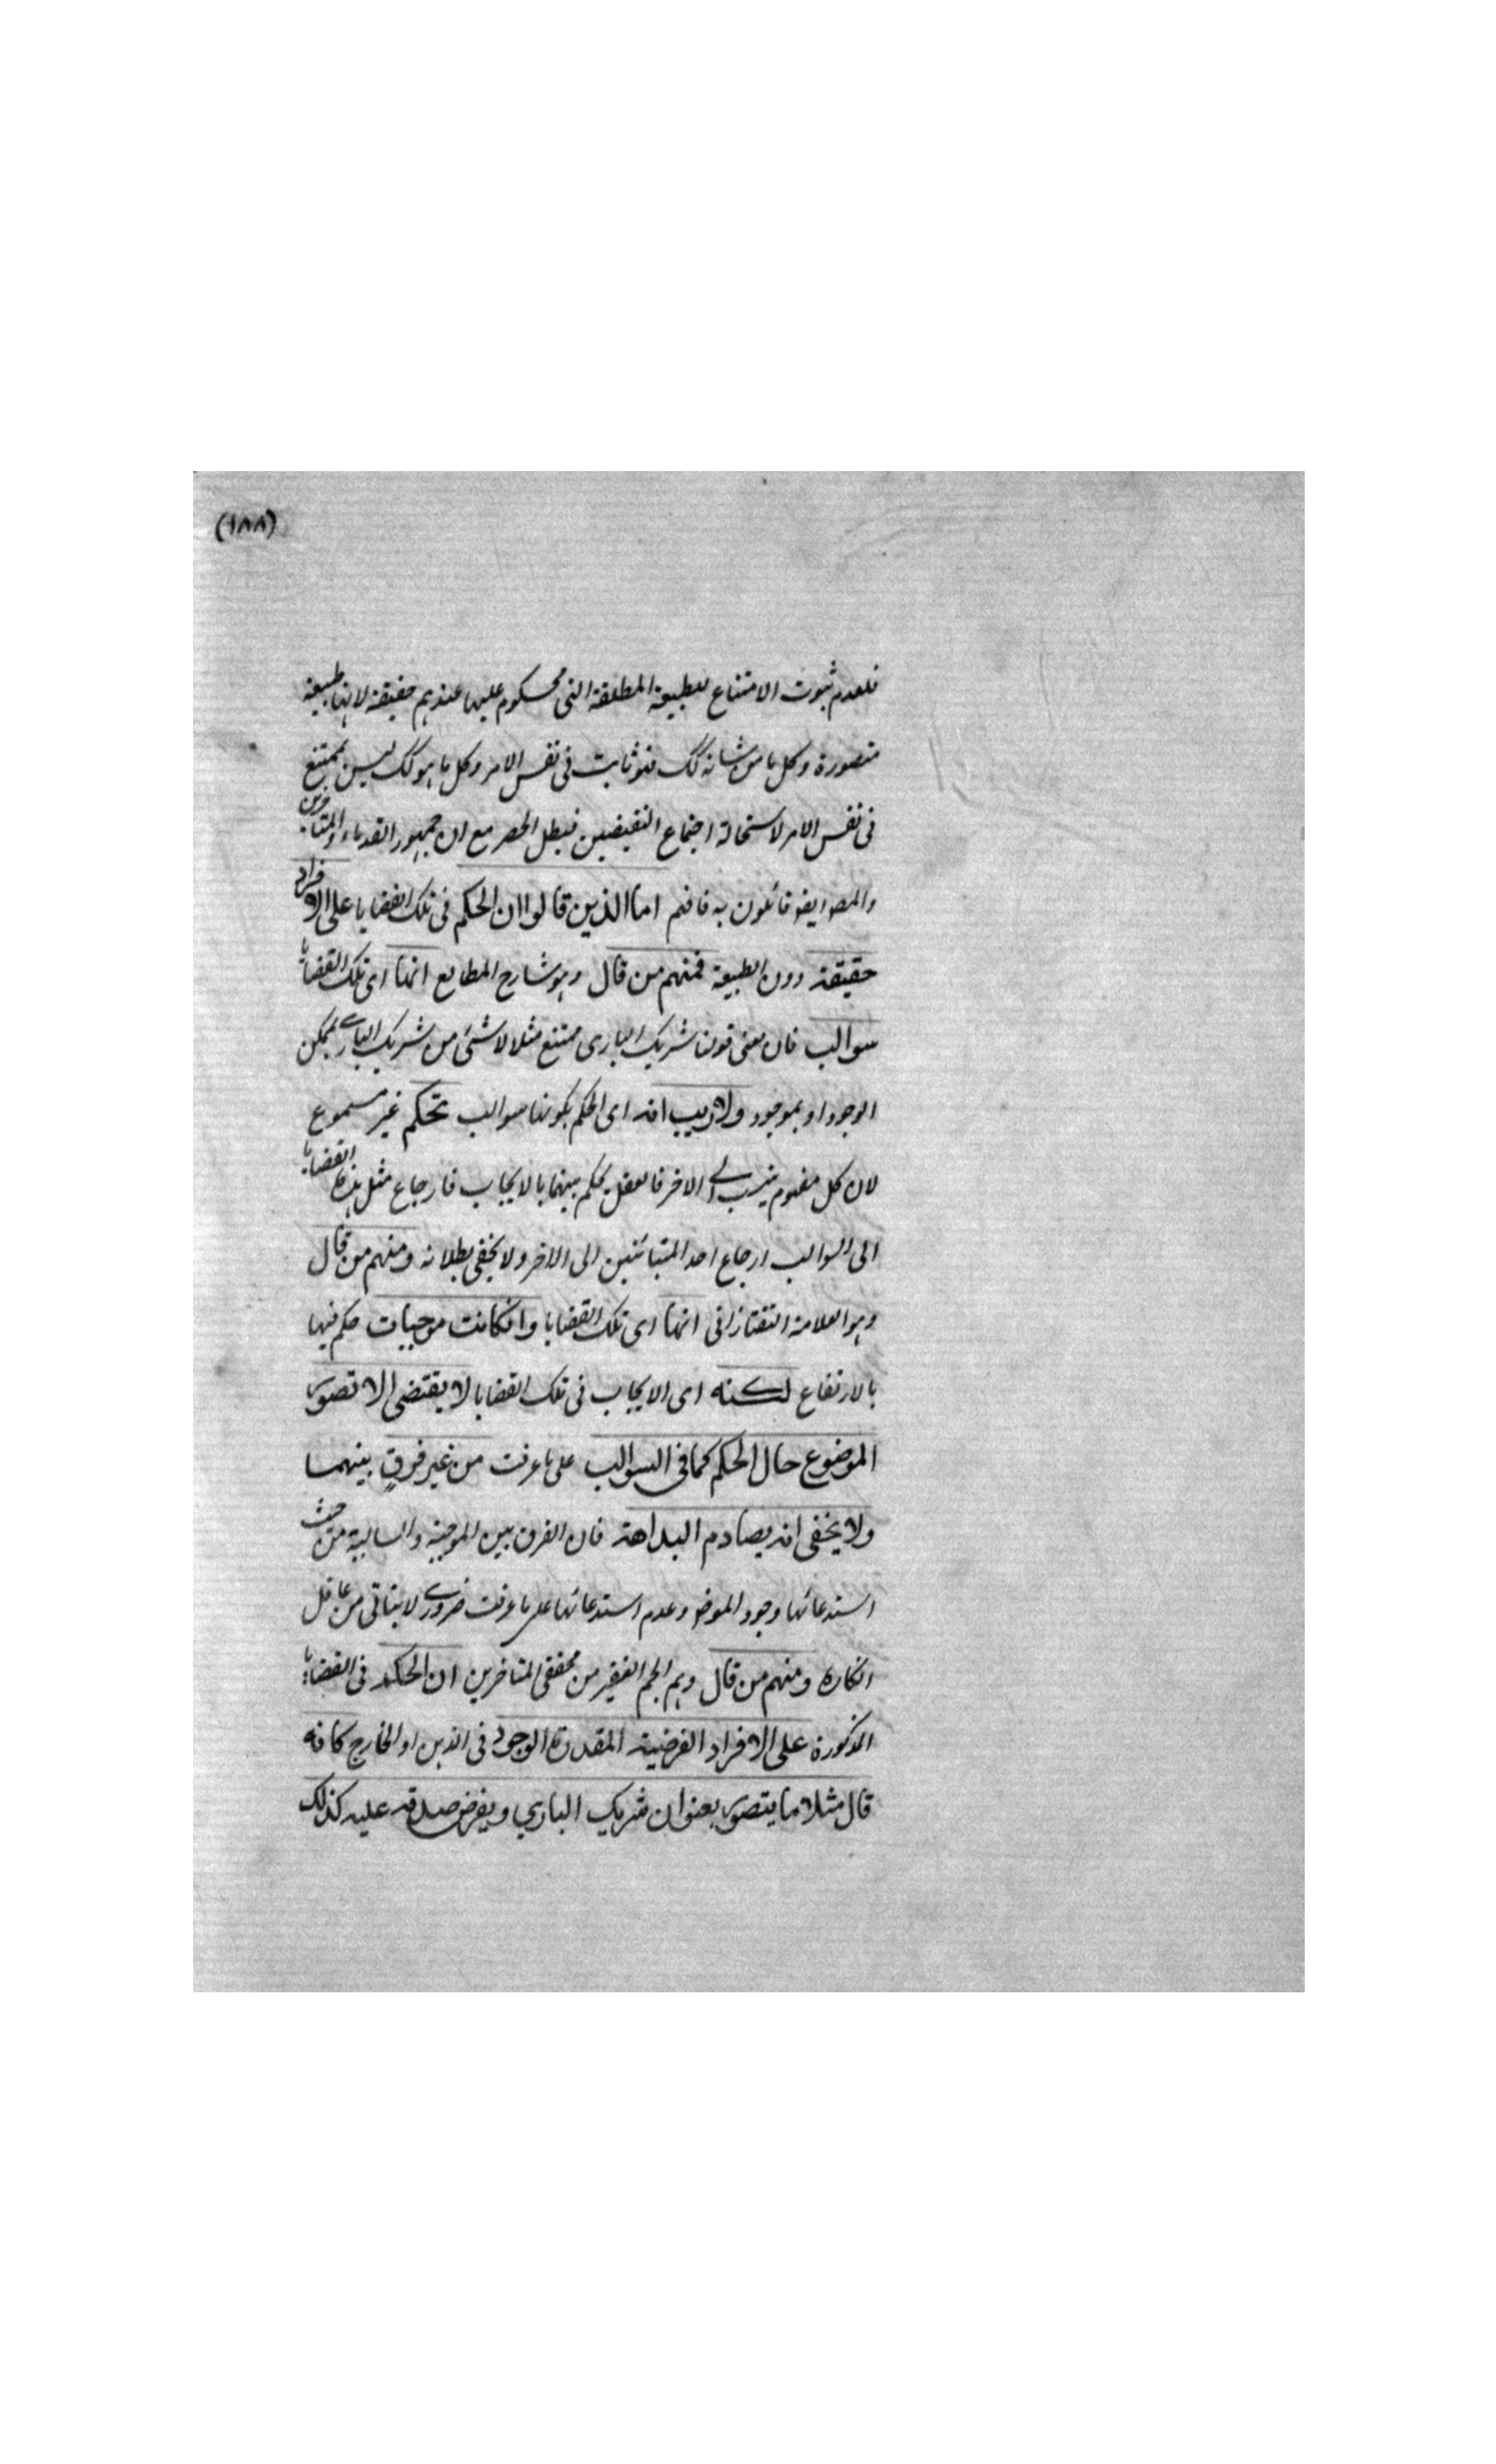 (١٨٨)
فلعدم ثبوت الامتناع للطبيعة المطلقة التي محكوم عليها عندهم حقيقة لانها طبيعة
متصورة وكل ما من شانه كك فهو ثابت في نفس الامر وكل ما هو كك ليس بممتنع
في نفس الامر لاستحالة اجتماع النقيضين فبطل الحصر مع ان جمهور القدماء والمتاخرين
والمصر ايضو قائلون به فافهم اما الذين قالوا ان الحكم في تلك القضايا على الافراد
حقيقة دون الطبيعة فمنهم من قال وهو شارح المطالع انها اى تلك القضايا
سوالب فان معنى قولنا شريك البارى ممتنع مثلا لا شئ من شريك البارے بممكن
الوجود او بموجود ولا ريب انه اى الحكم بكونها سوالب تحكم غير مسموع
لان كل مفهوم ينسب الے الاخر فالعقل يحكم بينهما بالايجاب فارجاع مثل هذه القضايا
الى السوالب ارجاع احد المتبائنين الى الاخر ولا يخفى بطلانه ومنهم من قال
وهو العلامة التفتازانى انها اى تلك القضايا وانكانت موجبات حكم فيها
بالارتفاع لكنه اى الايجاب فى تلك القضايا لا يقتضى الا تصور
الموضوع حال الحكم كما فى السوالب على ما عرفت من غير فرق بينهما
ولا يخفى انه يصادم البداهة فان الفرق بين الموجبة والسالبة من حيث
استدعائها وجود الموضو وعدم استدعائها على ما عرفت ضرورے لا يتاتى من عاقل
انكاره ومنهم من قال وهم الجم الغفير من محققى المتاخرين ان الحكم فى القضايا
المذكورة على الافراد الفرضية المقدرة الوجود فى الذهن او الخارج كانه
قال مثلا ما يتصور بعنوان شريك الباري ويفرض صدقه عليه كذلك